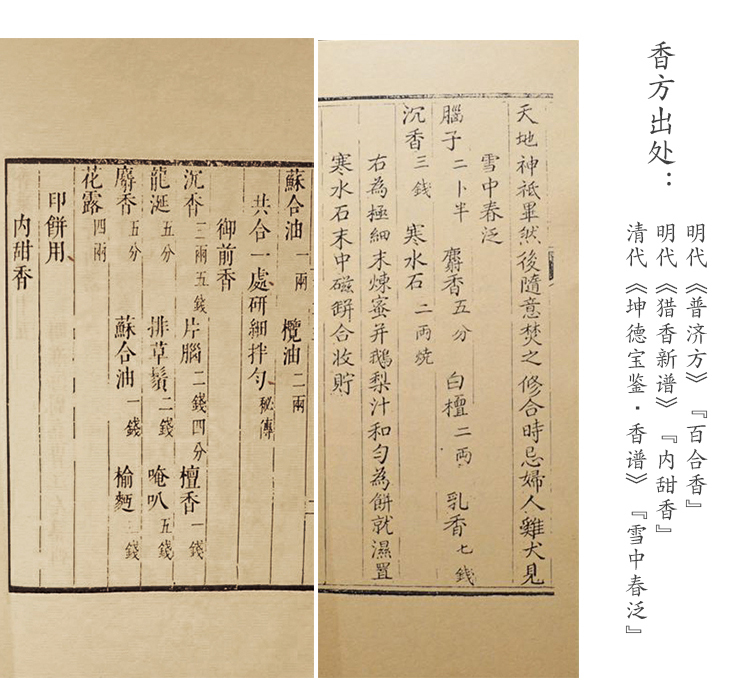 香方出处：
明代《普济方》『百合香』
明代《猎香新谱》『内甜香』
清代《坤德宝鉴·香谱》『雪中春泛』
天地神祇畢然後隨意焚之修合時忌婦人雞犬見
雪中春泛
腦子二卜半 麝香五分 白檀二両 乳香七錢
沉香三錢 寒水石二両燒
右為極細末煉蜜并鵝梨汁和勻為餅就濕置
寒水石末中磁缾合收貯
蘇合油一兩 欖油二兩
共合一處研細拌勻秘傳
御前香
沉香三兩五錢 片腦二錢四分 檀香一錢
龍涎五分 排草鬚二錢 唵叭五錢
麝香五分 蘇合油一錢 榆麪三錢
花露四兩
印餅用
內甜香